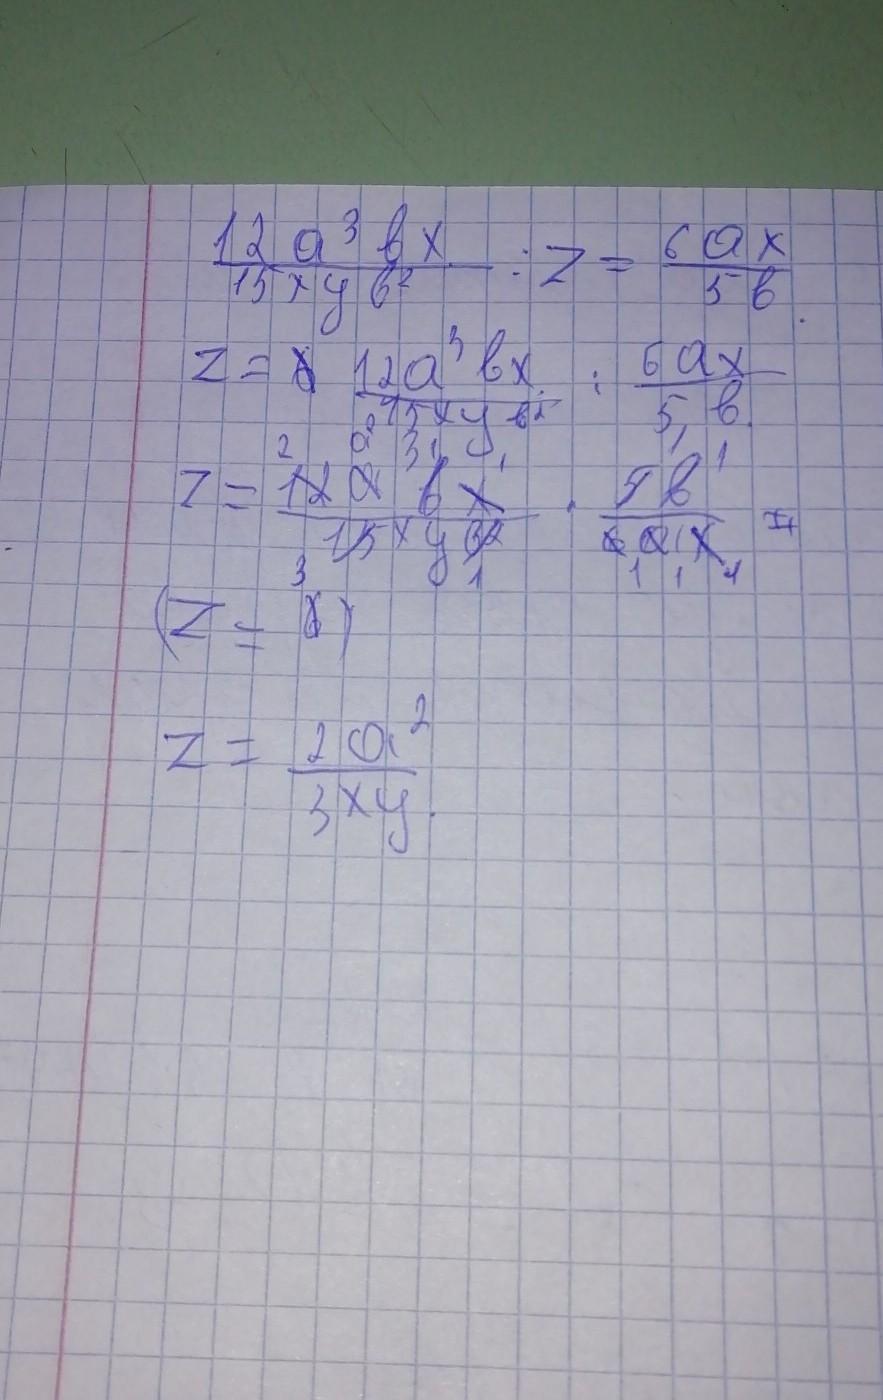 12a³bx / 15xyb² : z = 6ax / 5b.
z = 12a³bx / 15xyb² : 6ax / 5b
z = 12a³bx / 15xyb² · 5b / 6ax =
(z = )
z = 2a² / 3xy.